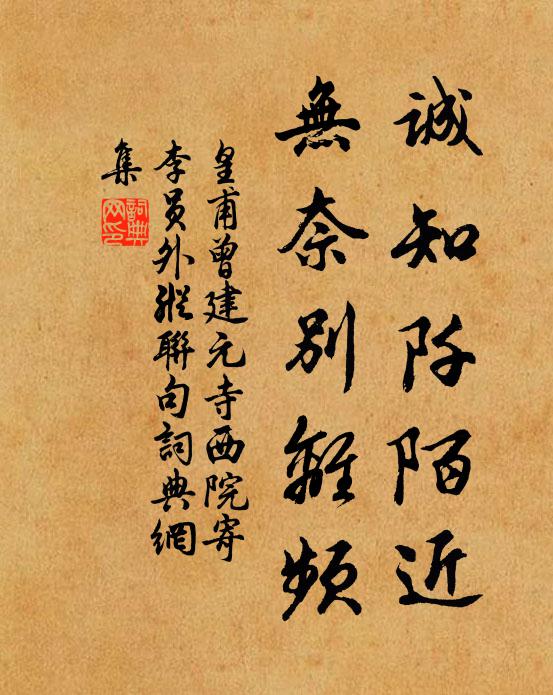 誠知阡陌近
無奈別離頻
皇甫曾建元寺西院寄
李員外縱聯句詞典網
集
詞典
网印